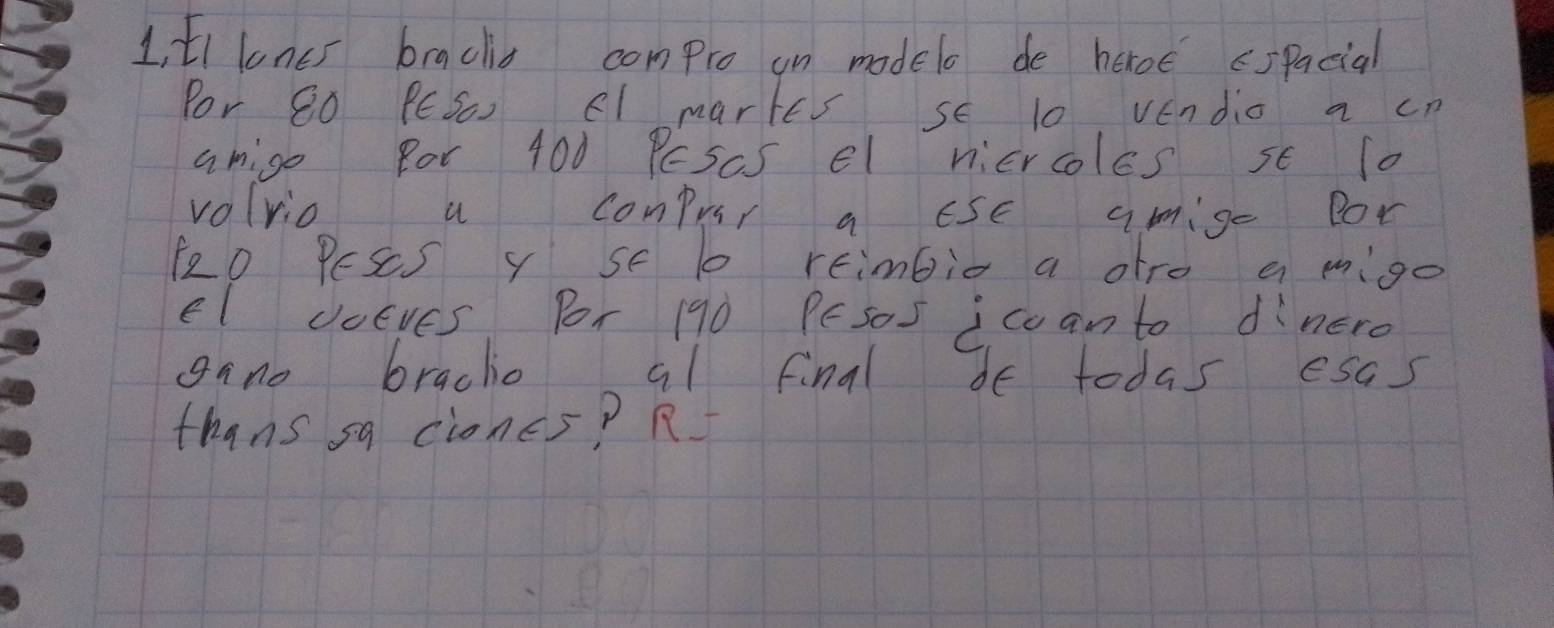 1. El lunes braclio compro un modelo de heroe espacial
Por 80 Pesos el martes se lo vendio a un
amigo Por 100 Pesos el miercoles se lo
volvio a comprar a ese amigo Por
120 Pesos y se lo reimbio a otro amigo
el Jueves Por 190 Pesos ¿cuanto dinero
gano braclio al final de todas esas
thans sa ciones? R=